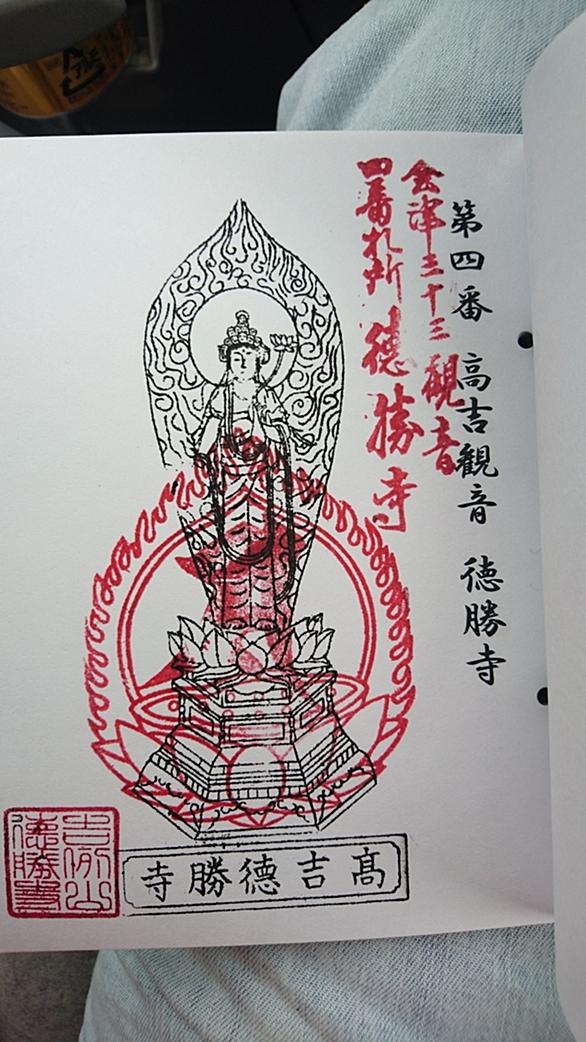 第四番 高吉観音 徳勝寺
会津三十三観音
四番札所 徳勝寺
高吉徳勝寺
アルミ